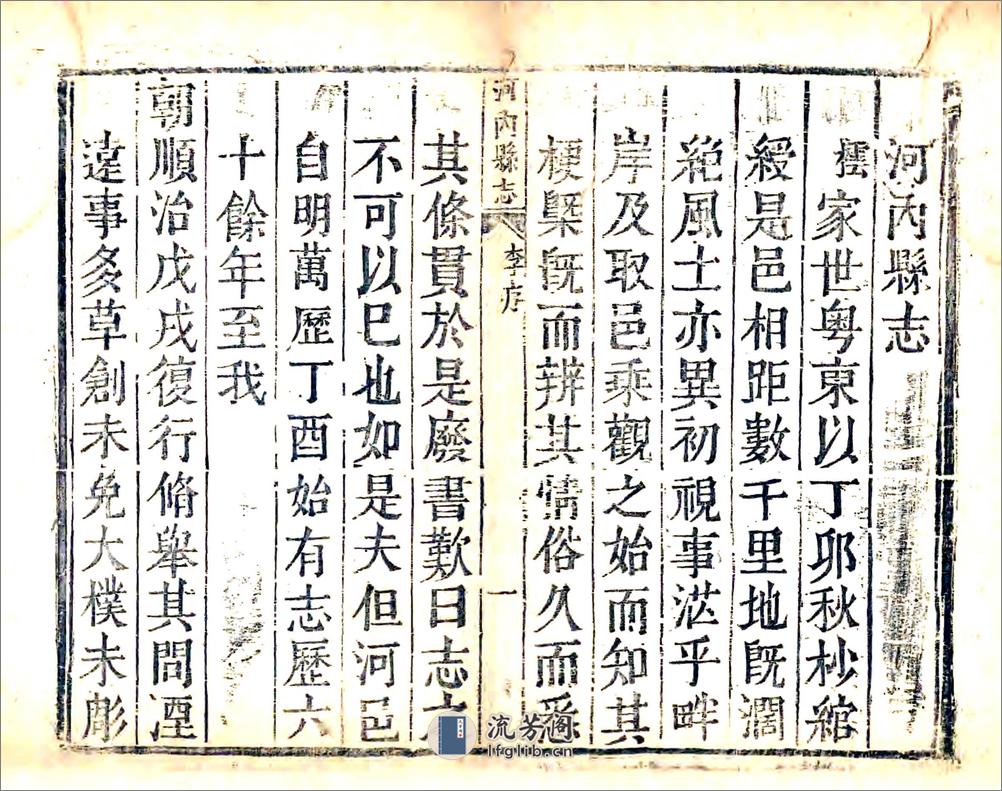 河內縣志
橒家世粤東以丁卯秋杪綰
綬是邑相距數千里地旣濶
絶風土亦異初視事茫乎畔
岸及取邑乘觀之始而知其
梗槩旣而辨其情俗久而
河內縣志
李序
一
其條貫於是廢書歎曰志之
不可以巳也如是夫但河邑
自明萬歷丁酉始有志歷六
十餘年至我
朝順治戊戌復行脩舉其問湮
遠事多草創未免大樸未彫
流芳阁
lfglib.cn